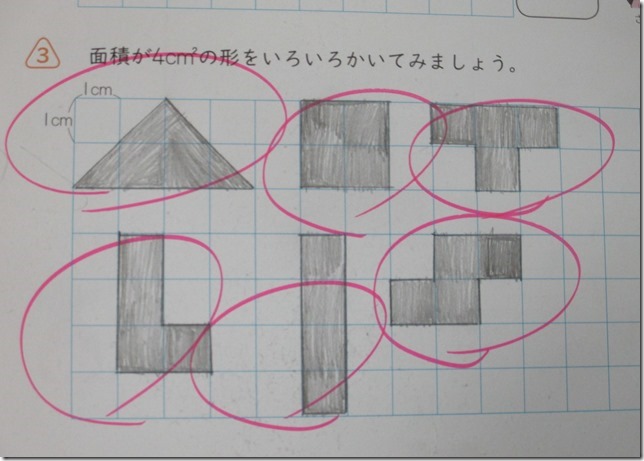 3 面積が4cm²の形をいろいろかいてみましょう。
1cm
1cm